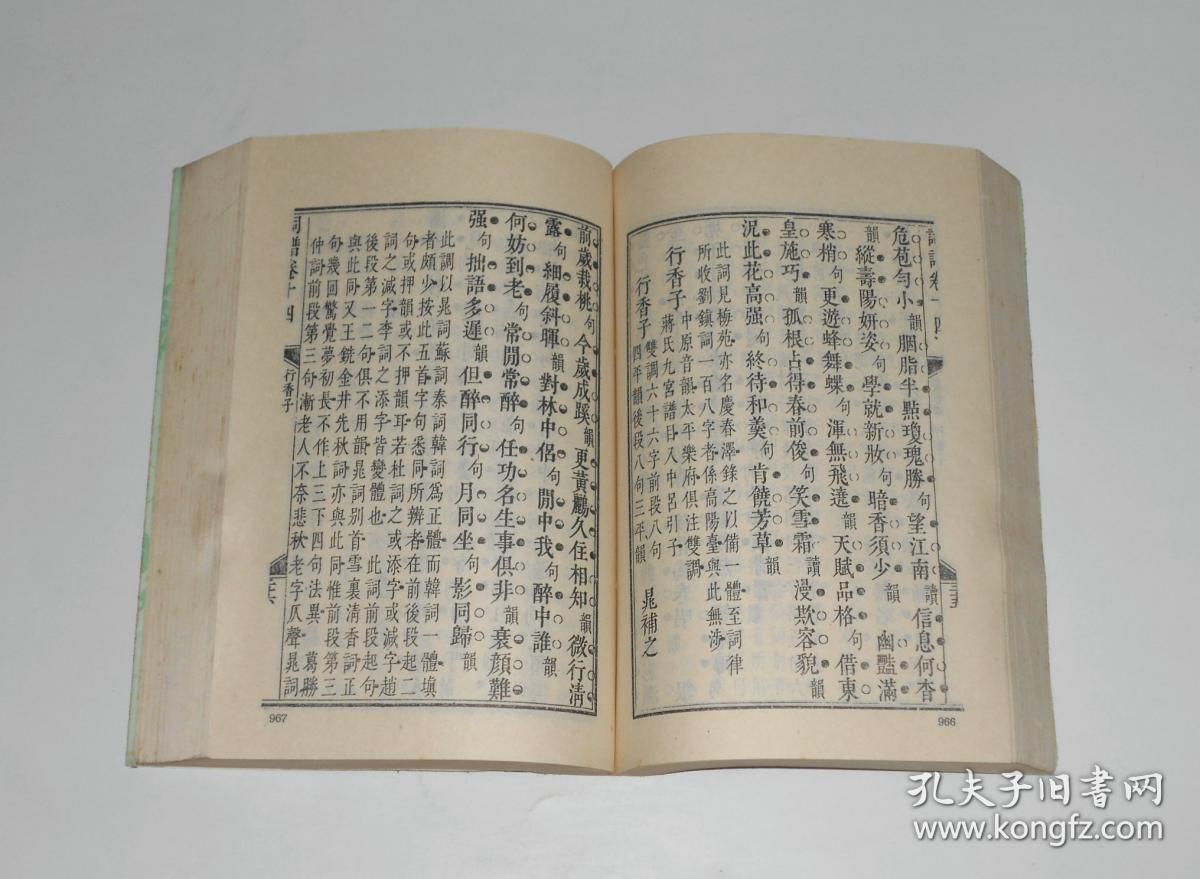 詞譜卷十四
危苞勻小韻胭脂半點瓊瑰勝句望江南讀信息何杳
韻縱壽陽妍姿句學就新妝句暗香須少韻幽豔滿
寒梢句更遊蜂舞蝶句渾無飛遶韻天賦品格句借東
皇施巧韻孤根占得春前俊句笑雪霜讀漫欺容貌韻
況此花高强句終待和羹句肯饒芳草韻
此詞見梅苑亦名慶春澤錄之以備一體至詞律
所收劉鎮詞一百八字者係高陽臺與此無涉
行香子中原音韻太平樂府俱注雙調
蔣氏九宮譜目入中呂引子
行香子雙調六十六字前段八句
四平韻後段八句三平韻 晁補之
三五
966
前歲栽桃句今歲成蹊韻更黃鸝久住相知韻微行清
露句細履斜暉韻對林中侶句閒中我句醉中誰韻
何妨到老句常閒常醉句任功名生事俱非韻衰顏難
强句拙語多遲韻但醉同行句月同坐句影同歸韻
此調以晁詞蘇詞秦詞韓詞爲正體而韓詞一體塡
者頗少按此五首字句悉同所辨者在前後段起二
句或押韻或不押韻耳若杜詞之或添字或減字趙
詞之減字李詞之添字皆變體也 此詞前段起句
後段第一二句俱不用韻晁詞別首雪裏清香詞正
與此同又王銑金井先秋詞亦與此同惟前段第三
句幾回驚覺夢初長不作上三下四句法異 葛勝
仲詞前段第三句漸老人不奈悲秋老字仄聲晁詞
詞譜卷十四
行香子
三六
967
孔夫子旧书网
www.kongfz.com